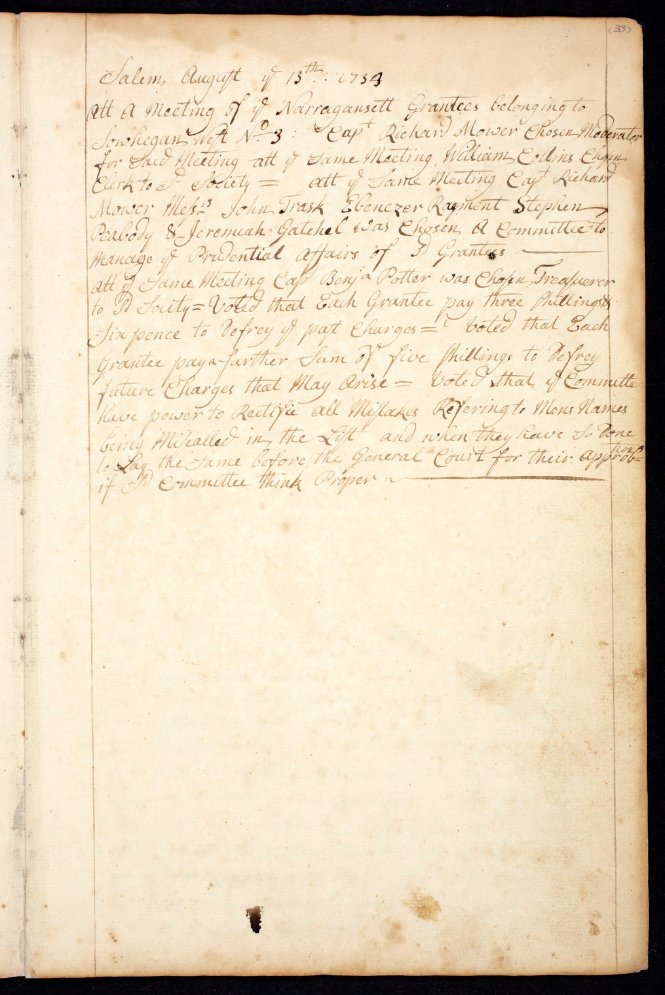 <33>
Salem August ye 13th: 1734
Att A Meeting of ye Narragansett Grantees belonging to
Sowhegan West No 3: Capt Richard Mower Chosen Moderator
for Said Meeting att ye Same Meeting William Collins Chosen
Clerk to Sd Society = att ye Same Meeting Capt Richard
Mower Messrs John Trask Ebenezer Rayment Stephen
Peabody & Jeremiah Gatchel was Chosen A Committee to
Manage ye Prudential Affairs of Sd Grantees
att ye Same Meeting Capt Benja Potter was Chosen Treasuerer
to Sd Socity = Voted that Each Grantee pay three shillings &
Six pence to Defrey ye past Charges = voted that Each
Grantee pay a farther Sum of five shillings to Defrey
future Charges that May Arise = Voted that ye Committe
have power to Rectifie all Mistakes Refering to Mens Names
being Miscalled in the List and when they have So Done
to Lay the Same before the General Court for their Approbation
if Sd Committee think Proper